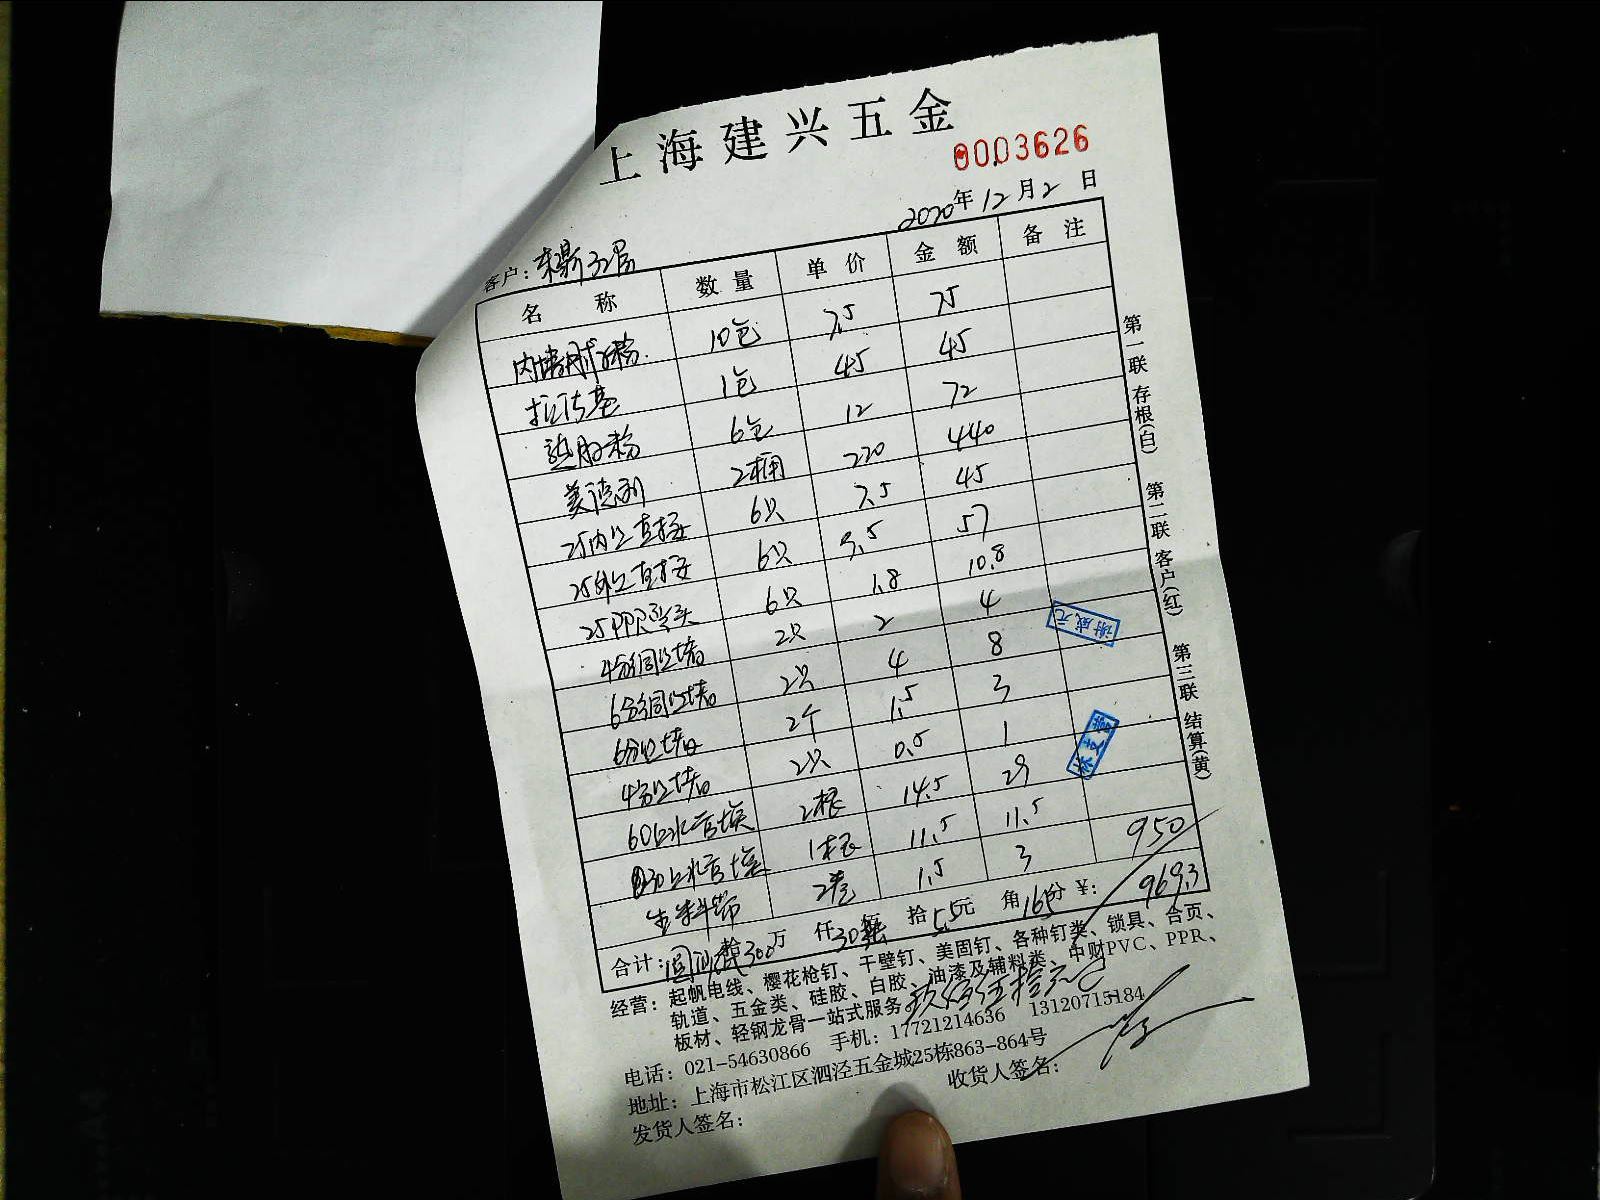 上海建兴五金
0003626
2020年12月2日
客户：
名称 数量 单价 金额 备注
内墙耐水粉 10包 7.5 75
1包 45 45
熟胶粉 6包 12 72
美德丽 2桶 220 440
25内丝直接 6只 7.5 45
25外丝直接 6只 9.5 57
25PPR弯头 6只 1.8 10.8
4分铜丝堵 2只 2 4
6分铜丝堵 2只 4 8
6分丝堵 2个 1.5 3
4分丝堵 2只 0.5 1
2根 14.5 29
1根 11.5 11.5
生料带 2卷 1.5 3
950
合计： 拾 300 万 仟 30 佰 拾 5.5 元 角 165 分 ￥： 969.3
经营：起帆电线、樱花枪钉、干壁钉、美固钉、各种钉类、锁具、合页、
轨道、五金类、硅胶、白胶、油漆及辅料类、中财PVC、PPR、
板材、轻钢龙骨一站式服务。
玖佰伍拾元
电话：021-54630866 手机：17721214636 13120715184
地址：上海市松江区泗泾五金城25栋863-864号
发货人签名： 收货人签名：
第一联 存根(白) 第二联 客户(红) 第三联 结算(黄)
谢成元